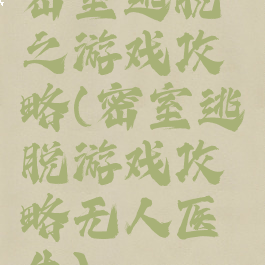 密室逃脱
之游戏攻
略(密室逃
脱游戏攻
略无人医